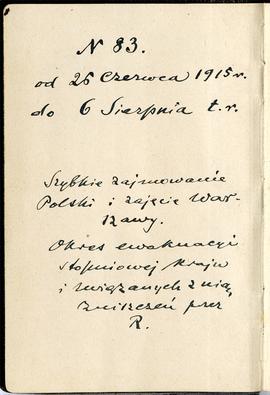 N 83.
od 25 Czerwca 1915 r.
do 6 Sierpnia t.r.
Szybkie zajmowanie
Polski i zajęcie War-
szawy.
Okres ewakuacyi
stopniowej kraju
i związanych z nią
zniszczeń przez
R.